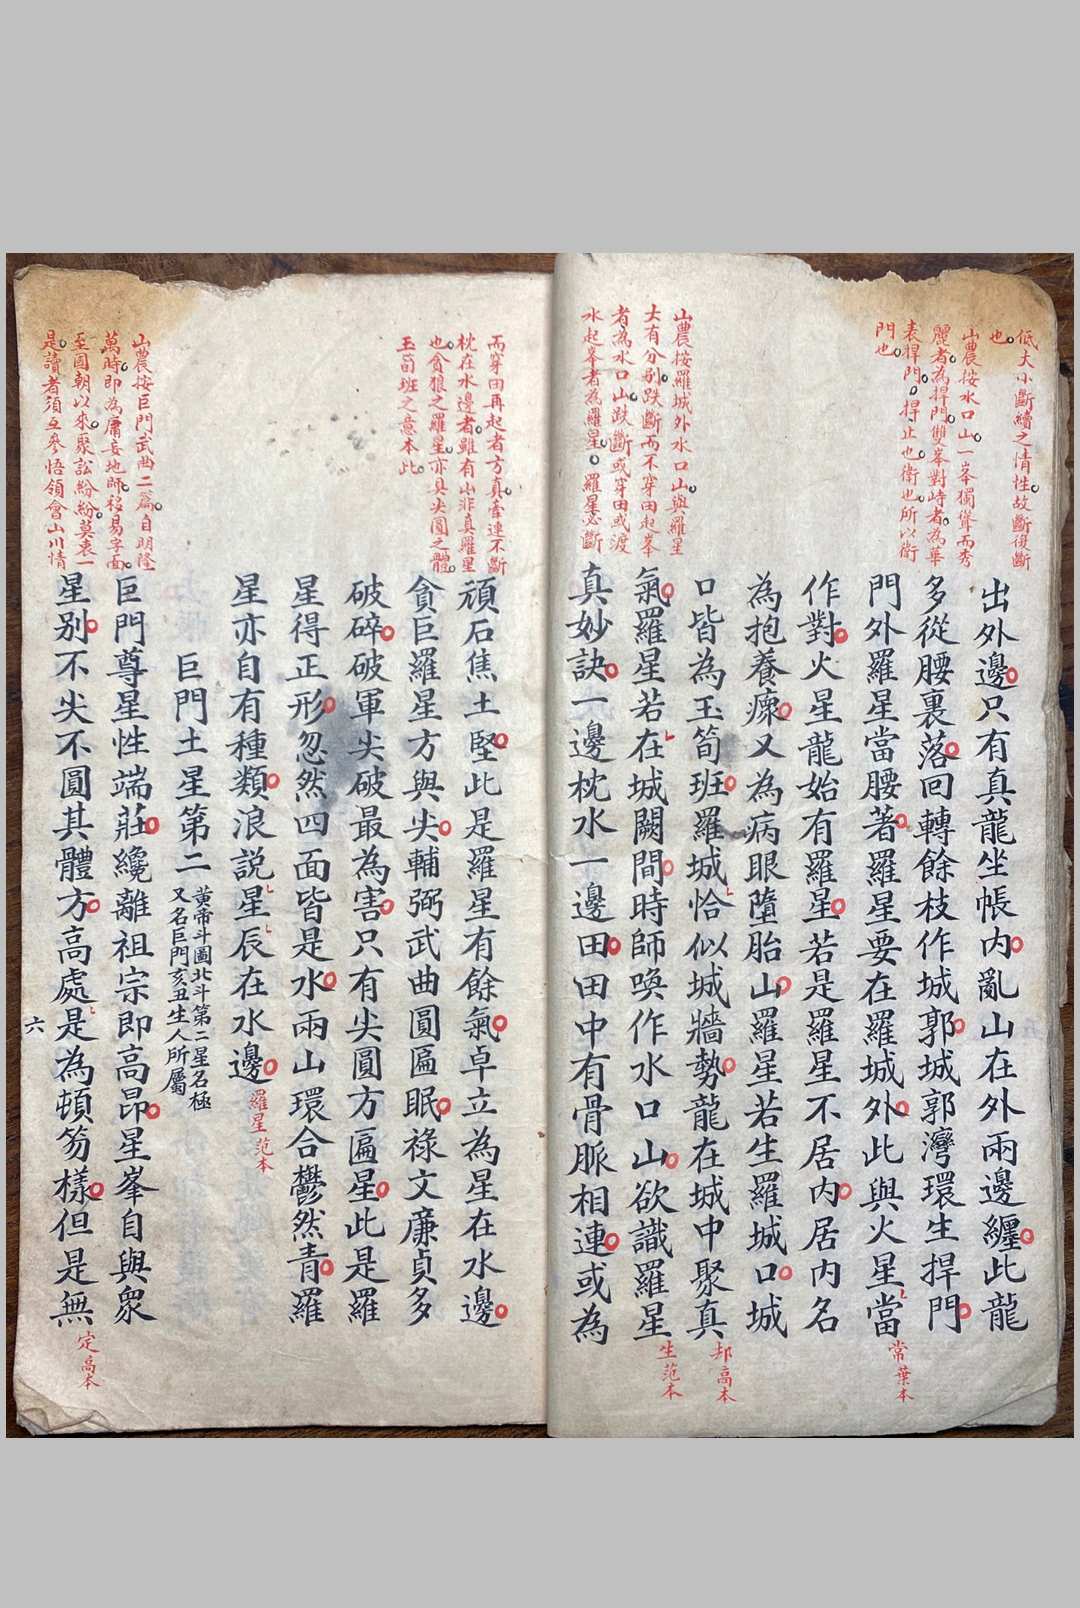 低大小斷續之情性故斷復斷
也
山農按水口山一峯獨聳而秀
麗者為捍門雙峯對峙者為華
表捍門捍止也衛也所以衛
門也
出外邊只有真龍坐帳內亂山在外兩邊纏此龍
多從腰裏落回轉餘枝作城郭城郭灣環生捍門
門外羅星當腰著羅星要在羅城外此與火星當
常葉本
作對火星龍始有羅星若是羅星不居內居內名
為抱養瘝又為病眼墮胎山羅星若生羅城口城
口皆為玉筍班羅城恰似城牆勢龍在城中聚真
却高本
氣羅星若在城闕間時師喚作水口山欲識羅星
生范本
真妙訣一邊枕水一邊田田中有骨脈相連或為
山農按羅城外水口山與羅星
大有分别跌斷而不穿田起峯
者為水口山跌斷或穿田或渡
水起峯者為羅星羅星必斷
而穿田再起者方真若連不斷
枕在水邊者雖有山非真羅星
也貪狼之羅星亦具尖圓之體
玉筍班之意本此
頑石焦土堅此是羅星有餘氣卓立為星在水邊
貪巨羅星方與尖輔弼武曲圓匾眠祿文廉貞多
破碎破軍尖破最為害只有尖圓方匾星此是羅
星得正形忽然四面皆是水兩山環合鬱然青羅
星亦自有種類浪說星辰在水邊
羅星范本
巨門土星第二
黃帝斗圖北斗第二星名極
又名巨門亥丑生人所屬
山農按巨門武曲二篇自明隆
萬時即為庸妄地師移易字面
至國朝以來聚訟紛紛莫衷一
是讀者須互參悟領會山川情
巨門尊星性端莊纔離祖宗即高昂星峯自與衆
星别不尖不圓其體方高處是為頓笏樣但是無
定高本
六